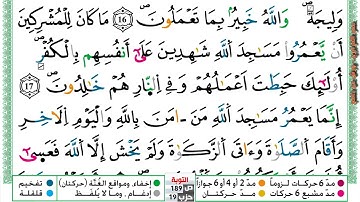 وَلِيجَةً ۚ وَاللَّهُ خَبِيرٌ بِمَا تَعْمَلُونَ ١٦ مَا كَانَ لِلْمُشْرِكِينَ
أَن يَعْمُرُوا مَسَاجِدَ اللَّهِ شَاهِدِينَ عَلَىٰ أَنفُسِهِم بِالْكُفْرِ ۚ
أُولَٰئِكَ حَبِطَتْ أَعْمَالُهُمْ وَفِي النَّارِ هُمْ خَالِدُونَ ١٧
إِنَّمَا يَعْمُرُ مَسَاجِدَ اللَّهِ مَنْ ءَامَنَ بِاللَّهِ وَالْيَوْمِ الْآخِرِ
وَأَقَامَ الصَّلَاةَ وَءَاتَى الزَّكَاةَ وَلَمْ يَخْشَ إِلَّا اللَّهَ ۖ فَعَسَىٰ
مدّ 6 حركات لزوماً مدّ 2 أو 4 أو 6 جوازاً التوبة إخفاء، ومواقع الغُنَّة (حركتان) تفخيم
مدّ مشبع 6 حركات مدّ حركتان ص 189 حزب 19 إدغام، وما لا يُلفظ قلقلة